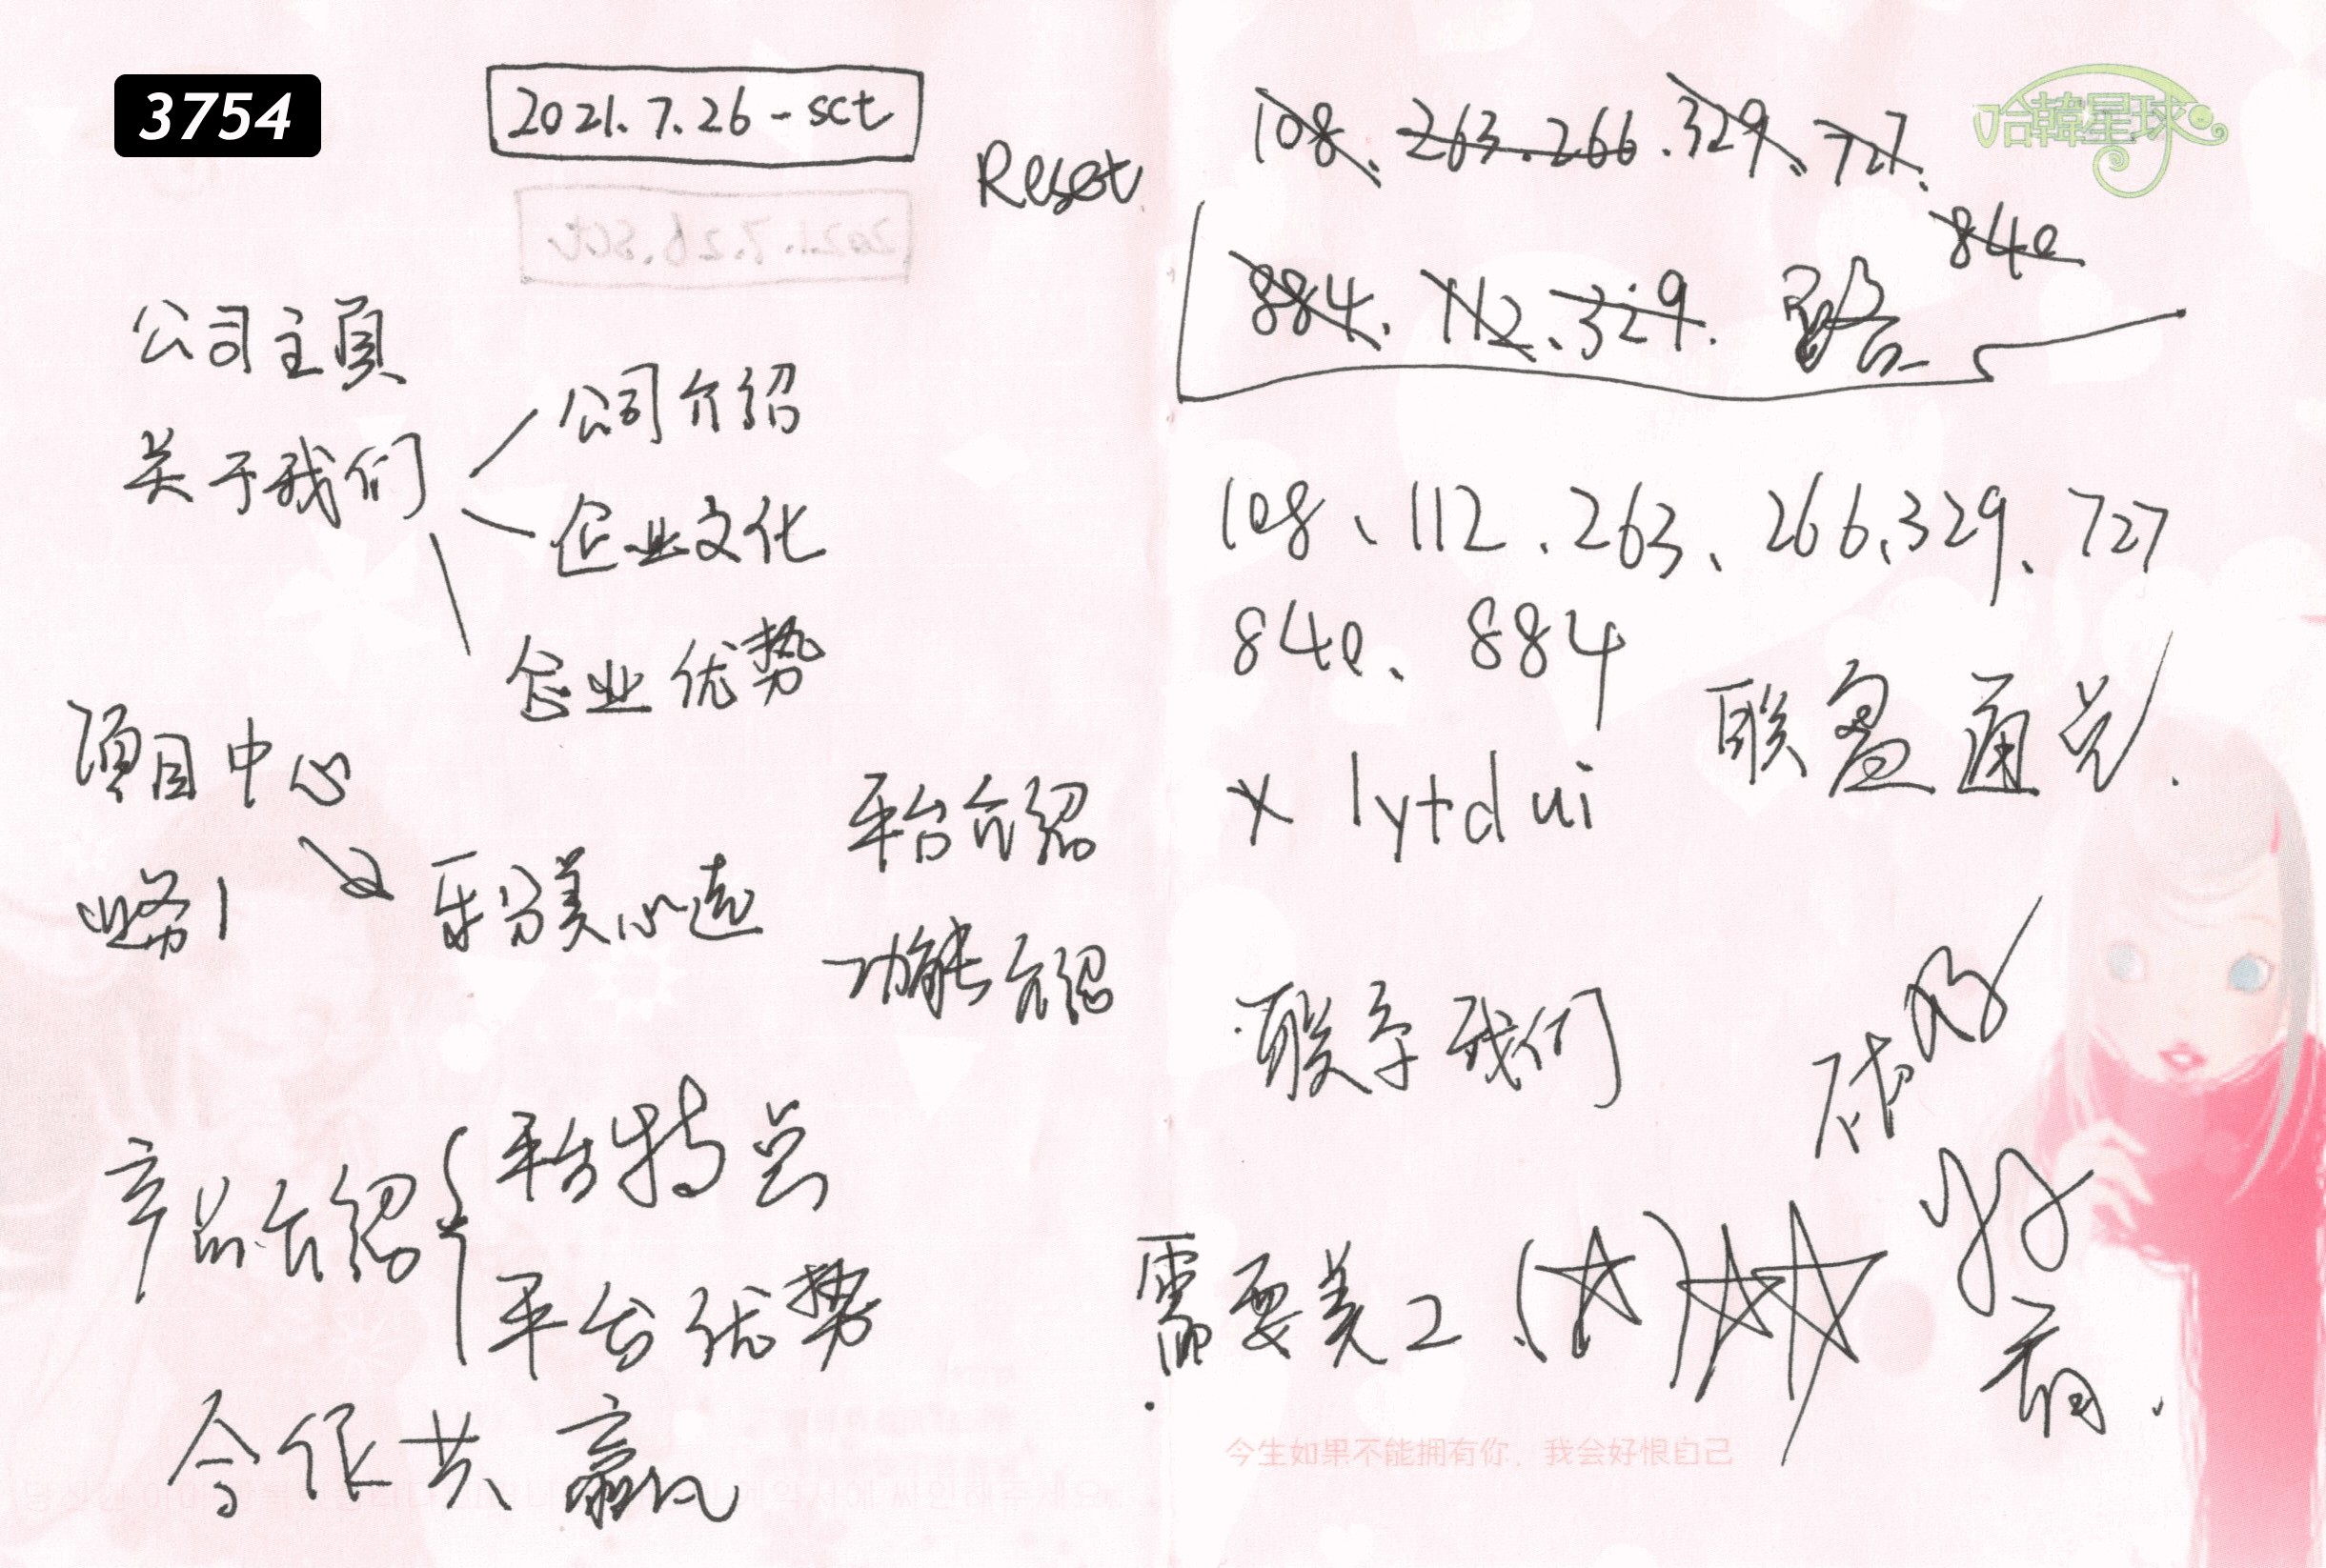 3754
2021.7.26-sct
Reset
公司主頁
关于我们
公司介绍
企业文化
企业优势
项目中心
业务1
平台介绍
功能介绍
产品介绍
平台特点
平台优势
合作共赢
哈韓星球
108、263.266.329、727.
840
884.112、329.
108、112、263、266、329、727
840、884
联盈通
x lytdui
联系我们
需要美工(☆)☆☆
好看.
今生如果不能拥有你，我会好恨自己